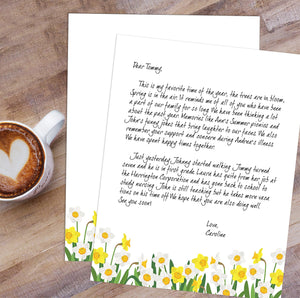 Dear Tommy,
This is my favorite time of the year, the trees are in bloom,
Spring is in the air. It reminds me of all of you who have been
a part of our family for so long. We have been thinking a lot
about the past year. Memories like Ana's Summer promise and
John's funny jokes that bring laughter to our faces. We also
remember your support and concern during Andrea's illness.
We have spent happy times together.
Just yesterday Johnny started walking. Tommy turned
seven and he is in first grade. Laura has quite from her job at
the Harrington Corporation and has gone back to school to
study nursing. John is still teaching but he takes more vaca
tions on his time off. We hope that you are also doing well.
See you soon!
Love,
Caroline